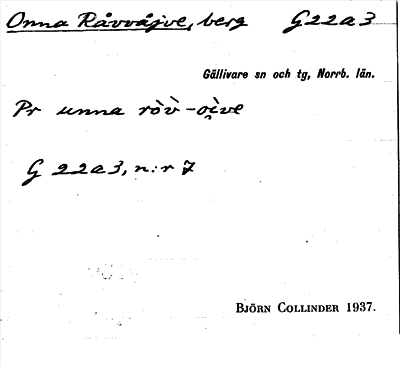 Onna Råvvåjve, berg G22a3
Gällivare sn och tg, Norrb. län.
Pr unna ròv̀-o̭ì̭ve
G 22a3, n:r 7
BJÖRN COLLINDER 1937.